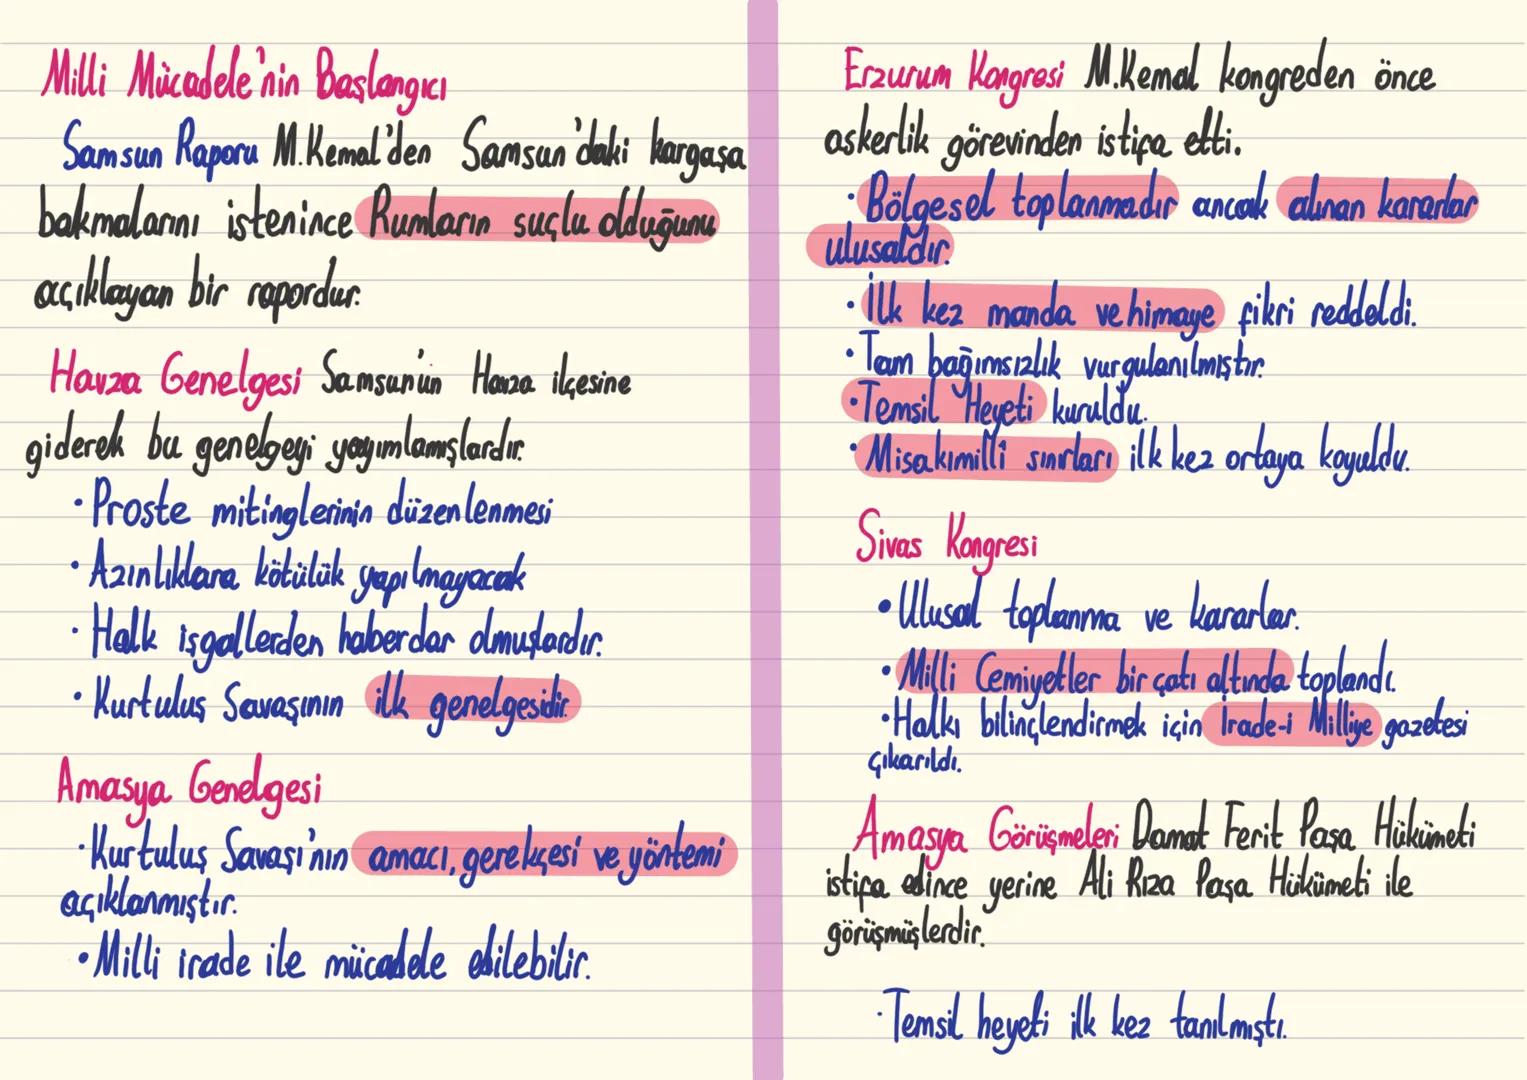 Milli Mücadele'nin Başlangıcı
Samsun Raporu M.Kemal'den Samsun'daki kargaşa
bakmalarını istenince Rumların suçlu olduğunu
açıklayan bir rapordur.
Havza Genelgesi Samsun'un Havza ilçesine
giderek bu genelgeyi yayımlamışlardır.
• Proste mitinglerinin düzenlenmesi
• Azınlıklara kötülük yapılmayacak
• Halk işgallerden haberdar olmuşlardır.
• Kurtuluş Savaşının ilk genelgesidir.
Amasya Genelgesi
• Kurtuluş Savaşı'nın amacı, gerekçesi ve yöntemi
açıklanmıştır.
• Milli irade ile mücadele edilebilir.
Erzurum Kongresi M.Kemal kongreden önce
askerlik görevinden istifa etti.
• Bölgesel toplanmadır ancak alınan kararlar
ulusaldır.
• İlk kez manda ve himaye fikri reddeldi.
• Tam bağımsızlık vurgulanılmıştır.
• Temsil Heyeti kuruldu.
• Misakımilli sınırları ilk kez ortaya koyuldu.
Sivas Kongresi
• Ulusal toplanma ve kararlar.
• Milli Cemiyetler bir çatı altında toplandı.
• Halkı bilinçlendirmek için İrade-i Milliye gazetesi
çıkarıldı.
Amasya Görüşmeleri Damat Ferit Paşa Hükümeti
istifa edince yerine Ali Rıza Paşa Hükümeti ile
görüşmüşlerdir.
• Temsil heyeti ilk kez tanılmıştı.